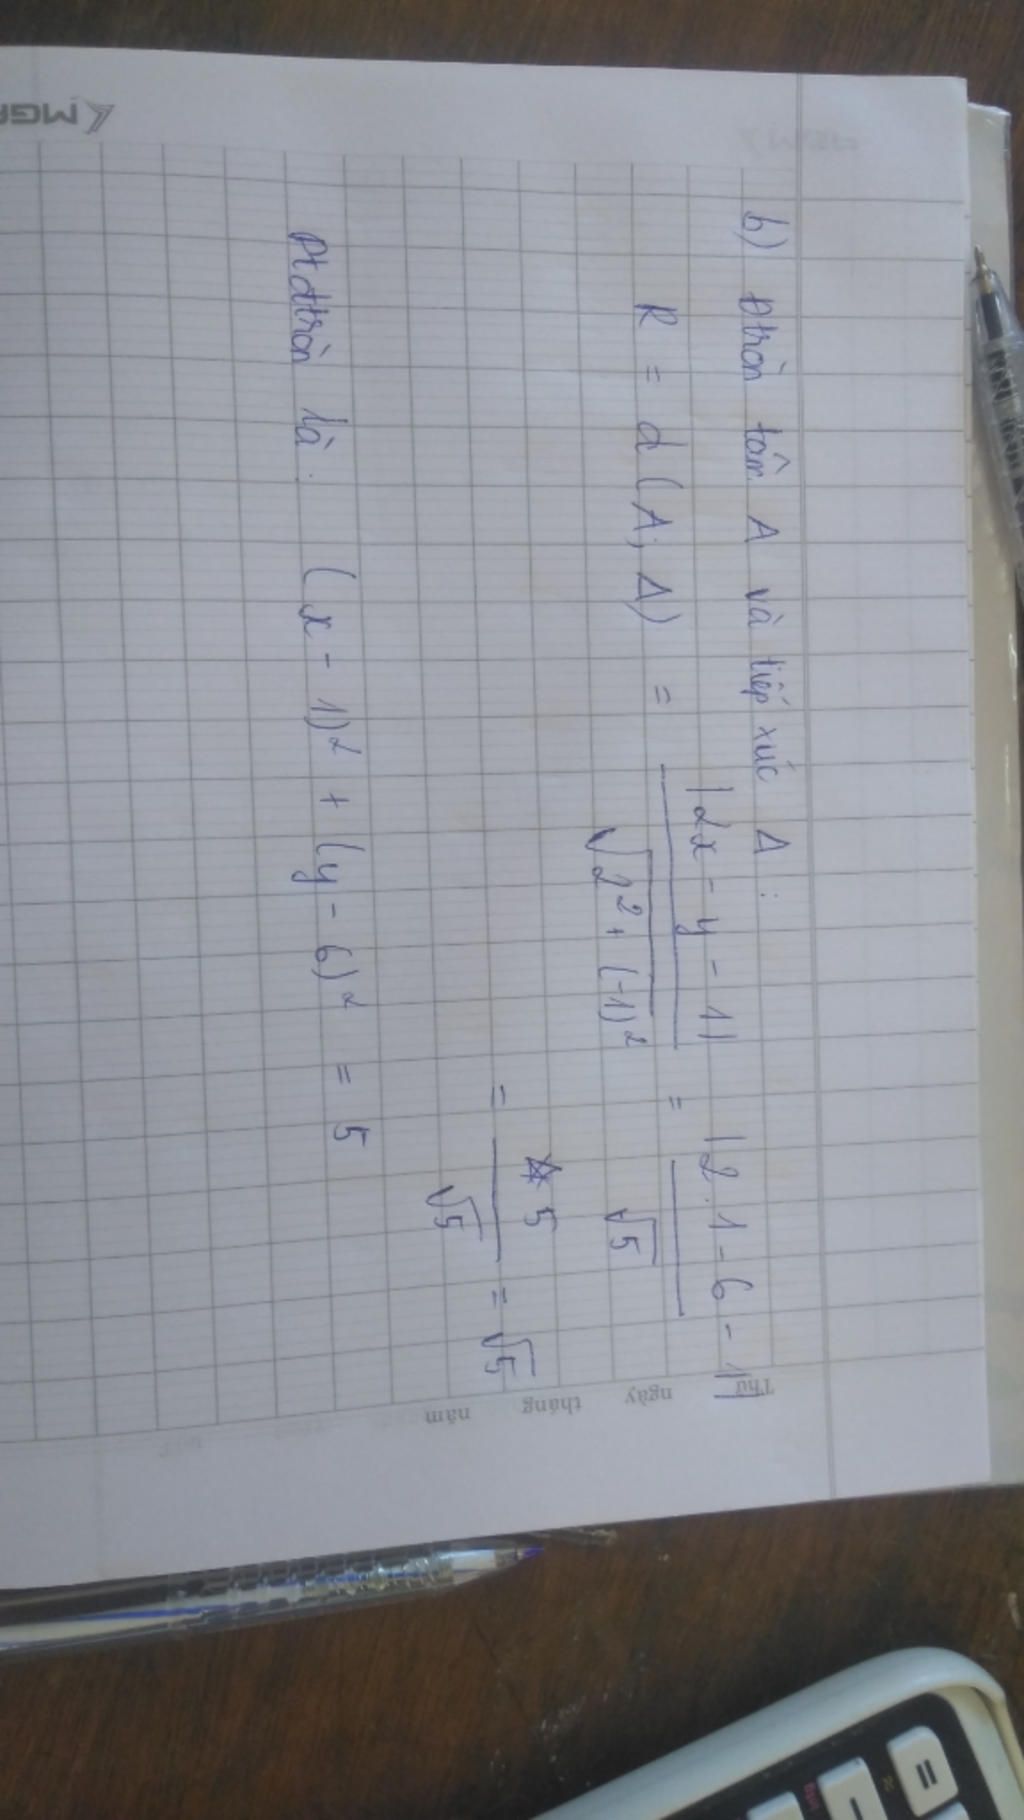 b) Đtròn tâm A và tiếp xúc Δ :
R = d(A; Δ) = |2x - y - 1| / √2² + (-1)² = |2.1 - 6 - 1| / √5
= 5 / √5 = √5
Pt đtròn là: (x - 1)² + (y - 6)² = 5
Thứ
ngày
tháng
năm